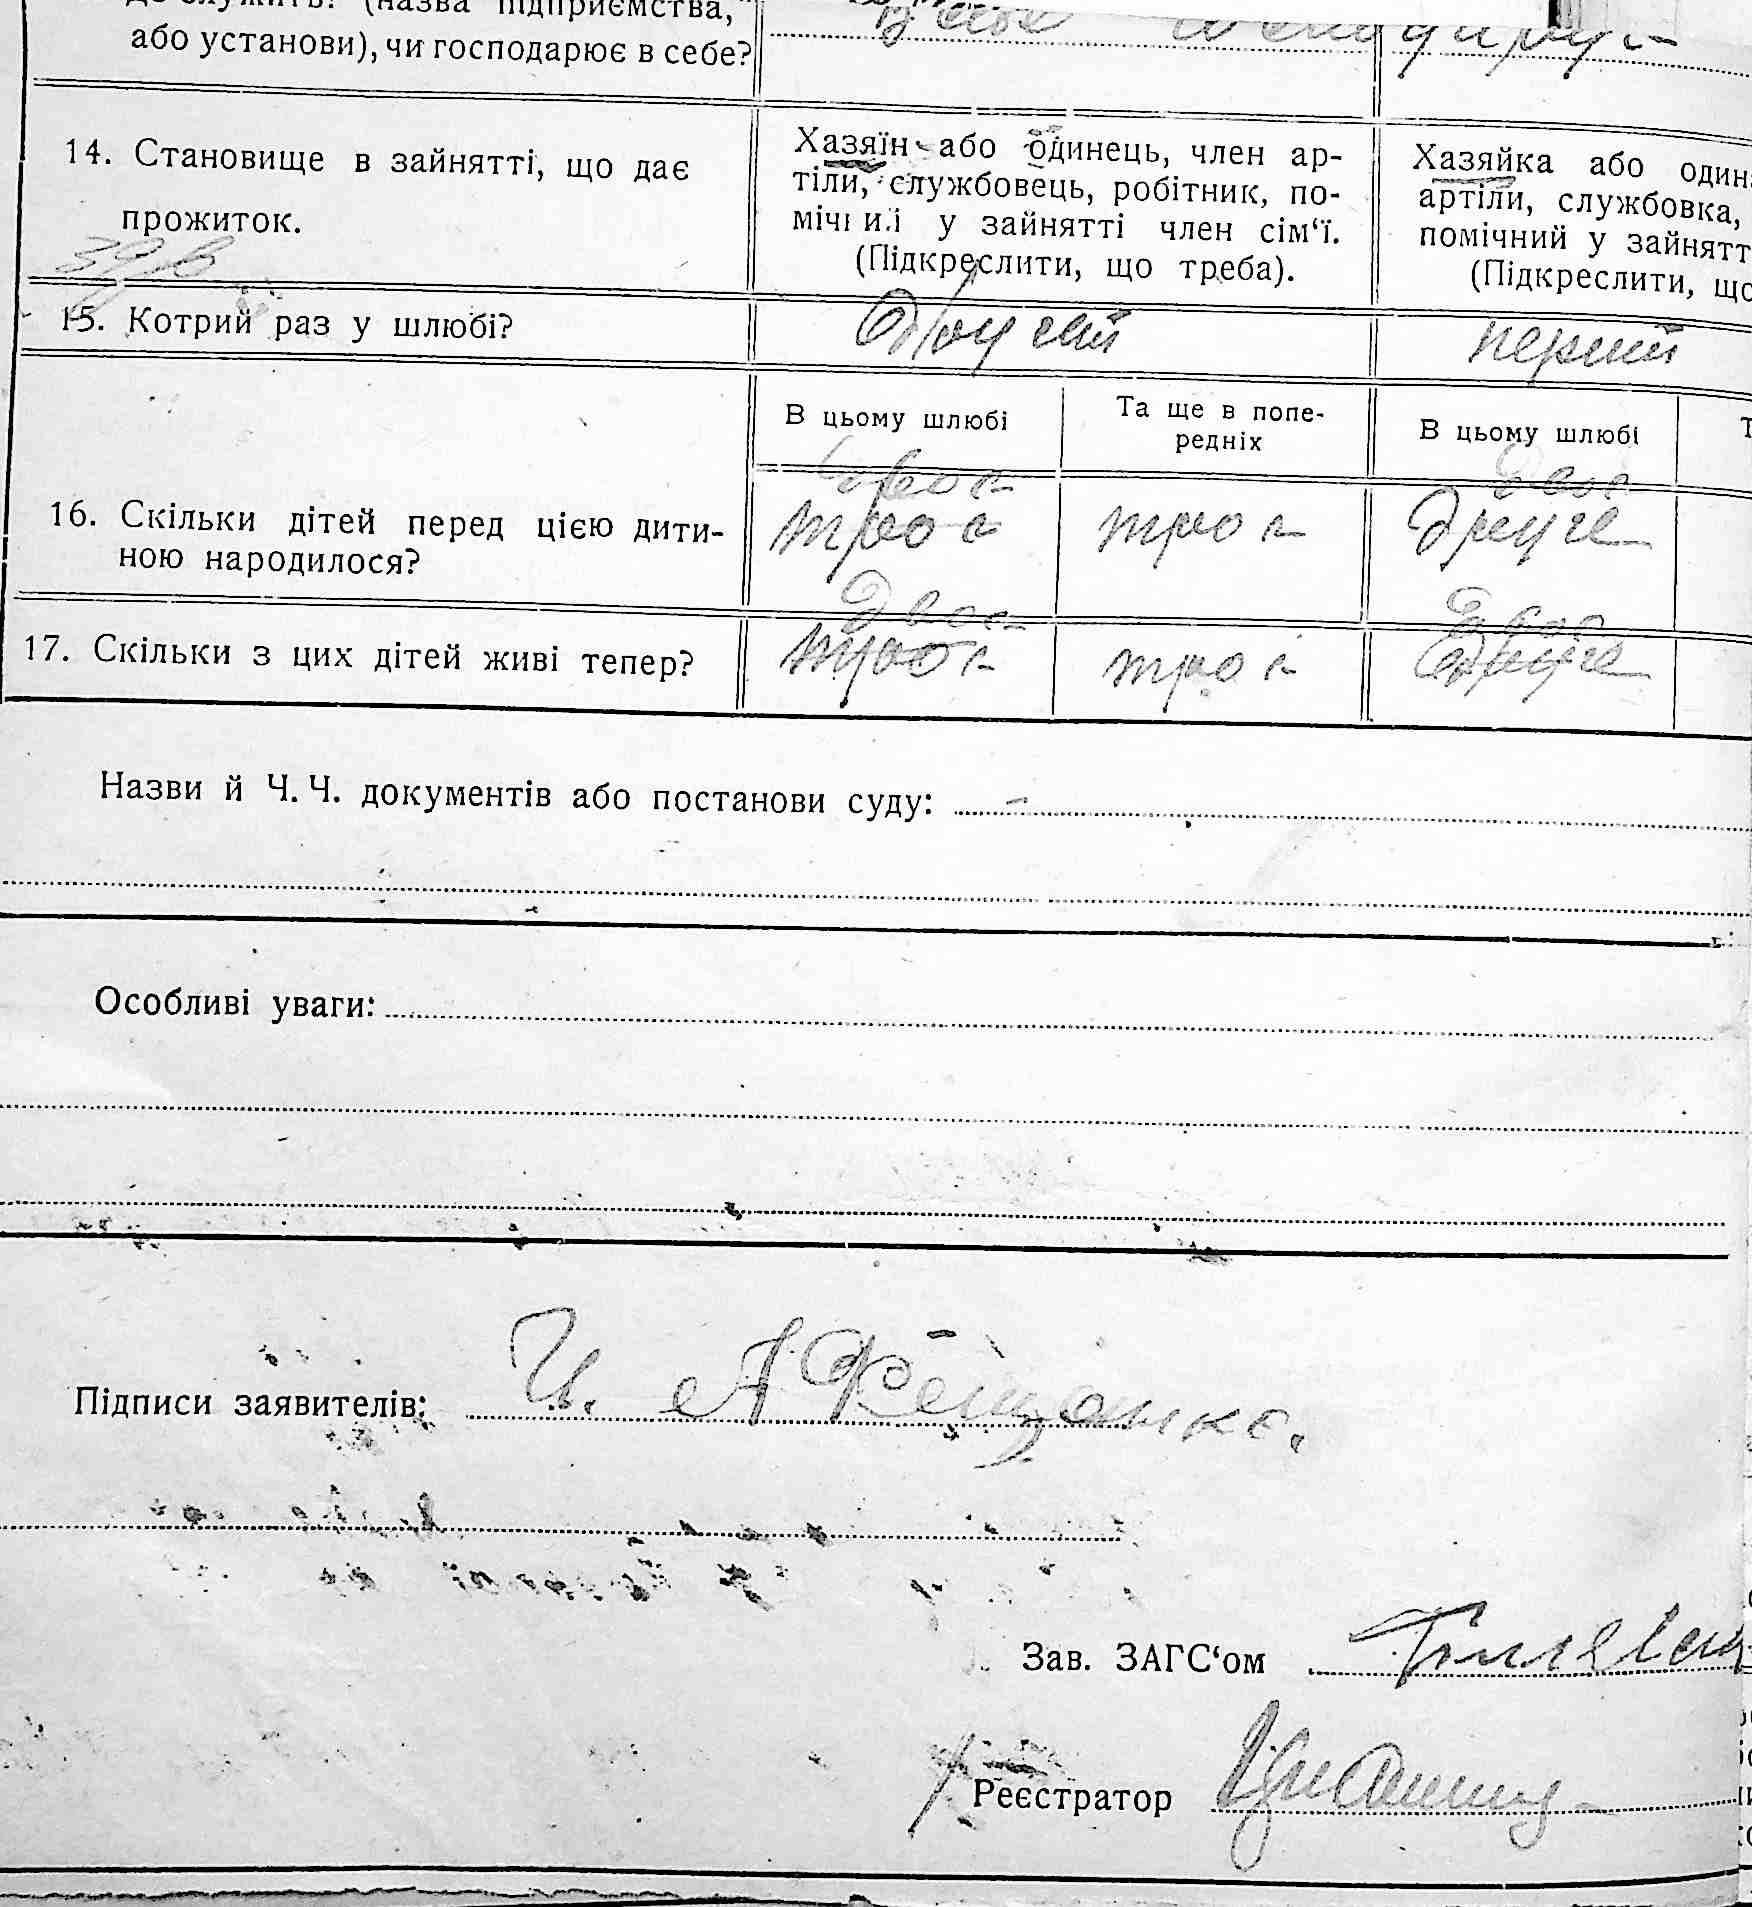 де служить? (назва підприємства,
або установи), чи господарює в себе?
14. Становище в зайнятті, що дає
прожиток.
Хазяїн або одинець, член ар-
тіли, службовець, робітник, по-
мічн и.і у зайнятті член сім‘ї.
(Підкреслити, що треба).
Хазяйка або один
артіли, службовка,
помічний у зайнятт
(Підкреслити, що
15. Котрий раз у шлюбі?
другий
перший
В цьому шлюбі
Та ще в попе-
редніх
В цьому шлюбі
16. Скільки дітей перед цією дити-
ною народилося?
двоє
троє
троє
двоє
друге
17. Скільки з цих дітей живі тепер?
двоє
троє
троє
двоє
друге
Назви й Ч. Ч. документів або постанови суду:
Особливі уваги:
Підписи заявителів:
Зав. ЗАГС‘ом
Реєстратор